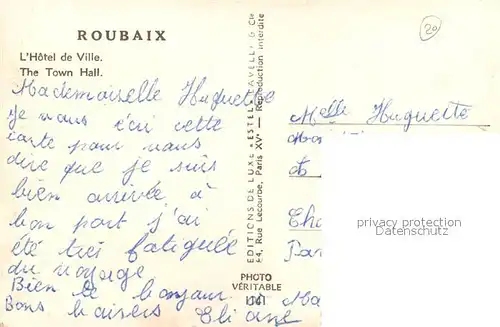 ROUBAIX
L'Hôtel de Ville.
The Town Hall.
Mademoiselle Huguette
je vous écri cette
carte pour vous
dire que je suis
bien arrivée à
bon port j'ai
été trés fatiguée
du voyage
Bien le bonjour
Bons baisers Eliane
EDITIONS DE LUXE "ESTEL" LAVELLE & Cie
64, Rue Lecourbe, Paris XVe — Reproduction interdite
PHOTO
VÉRITABLE
20
Melle Huguette
privacy protection